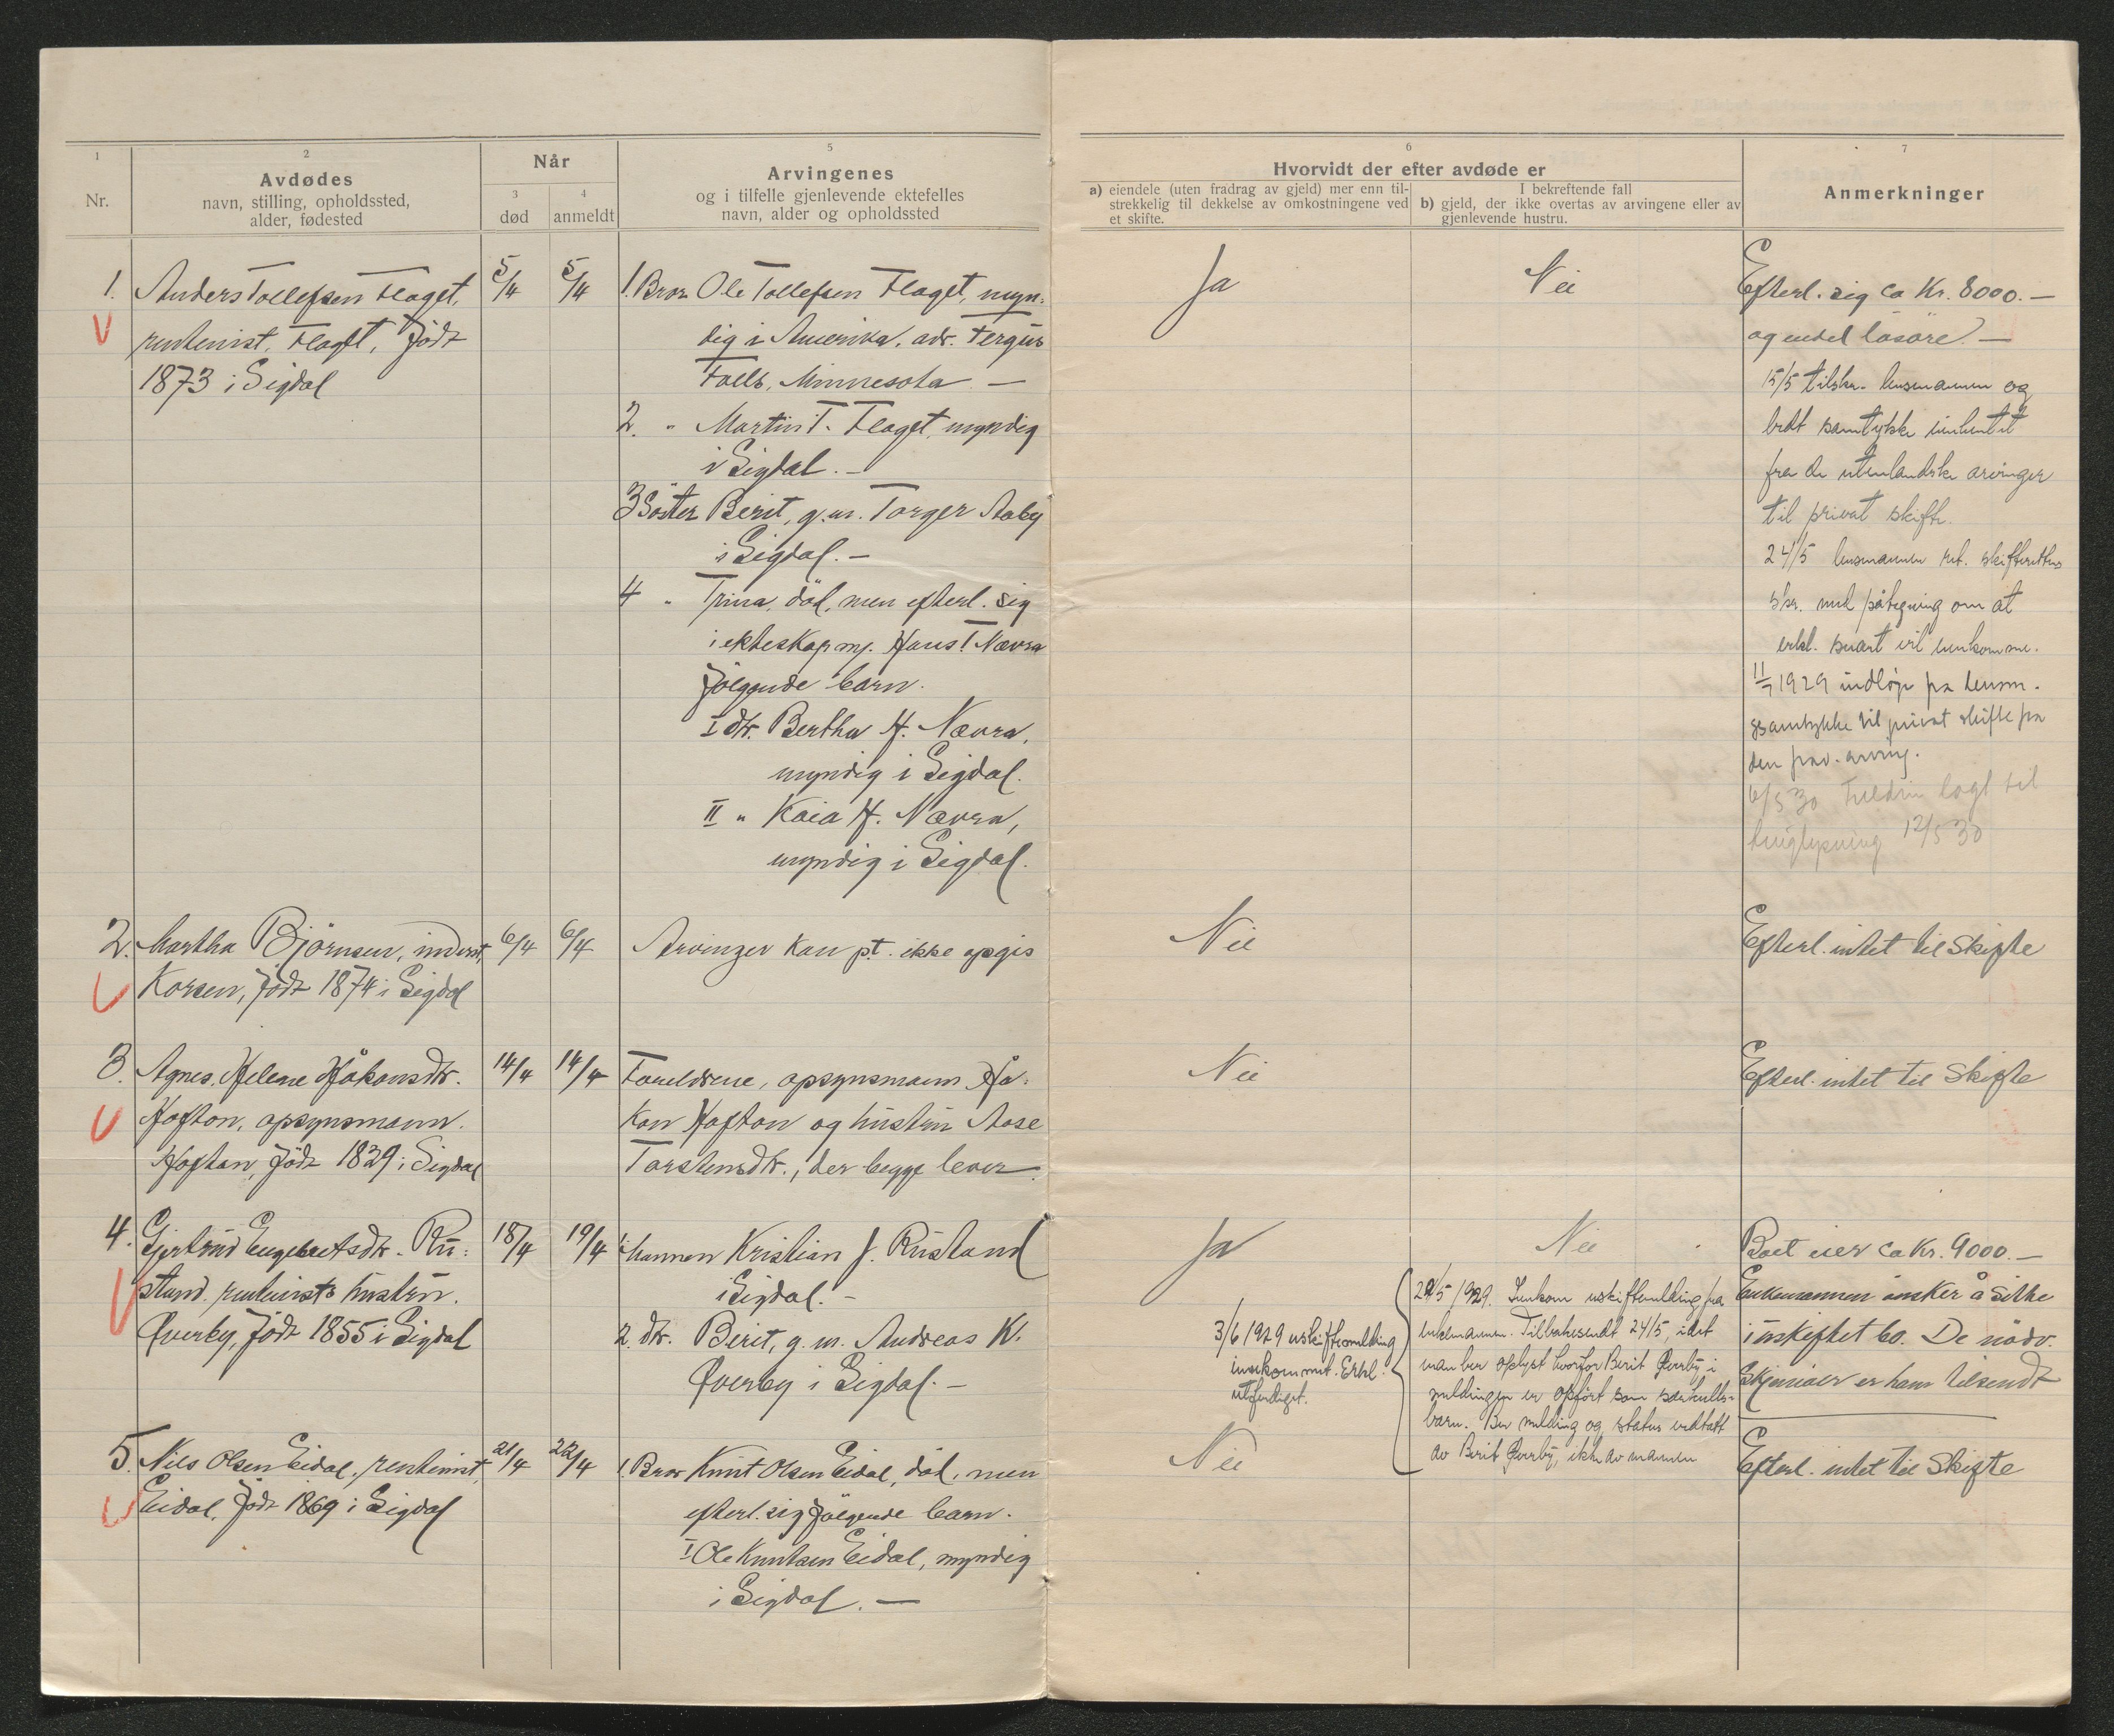 1
2
Når
5
6
7
Avdødes
Arvingenes
Hvorvidt der efter avdøde er
Nr.
navn, stilling, opholdssted,
alder, fødested
3
død
4
anmeldt
og i tilfelle gjenlevende ektefelles
navn, alder og opholdssted
a) eiendele (uten fradrag av gjeld) mer enn til-
strekkelig til dekkelse av omkostningene ved
et skifte.
I bekreftende fall
b) gjeld, der ikke overtas av arvingene eller av
gjenlevende hustru.
Anmerkninger
1. Anders Tollefsen Flaget,
rentenist, Flaget, født
1873 i Sigdal
5/4
5/4
1. Bror Ole Tollefsen Flaget, myn-
dig i Amerika. adr. Fergus
Falls, Minnesota. —
2. " Martin T. Flaget, myndig
i Sigdal. —
3 Søster Berit, g.m. Torger Aaby
i Sigdal. —
4 " Trina, död, men efterl. sig
i ekteskap m. Hans T. Nævra
følgende barn.
I dtr. Bertha H. Nævra,
myndig i Sigdal.
II " Kaia H. Nævra,
myndig i Sigdal.
Ja
Nei
Efterl. sig ca Kr. 8000. —
og endel løsøre. —
15/5 tilskr. lensmannen og
bedt samtykke innhentet
fra de utenlandske arvinger
til privat skifte.
24/5 lensmannen ret. skifterettens
skr. med påtegning om at
erkl. snart vil innkomme.
11/7 1929 indløp fra lensm.
samtykke til privat skifte fra
den frav. arving.
6/5 30 lagt til
tinglysning 12/5 30
2. Martha Björnsen, inderst,
Korsen, född 1874 i Sigdal
6/4
6/4
Arvinger kan pt. ikke opgis
Nei
Efterl. intet til skifte
3. Agnes Helene Håkonsdtr.
Hoftun, opsynsmann.
Hoftun, född 1829 i Sigdal
14/4
14/4
Foreldrene, opsynsmann Hå-
kon Hoftun og hustru Aase
Torstensdtr., der begge lever.
Nei
Efterl. intet til Skifte
4. Gjertrud Engebretsdtr. Ru-
stand, rentenists hustru.
Qverby, född 1855 i Sigdal
18/4
19/4
1. Mannen Kristian J. Rustand
i Sigdal. —
2 dtr. Berit, g.m. Andreas K.
Qverby i Sigdal. —
Ja
3/6 1929 uskiftemelding
innkommet. Erkl.
utferdiget.
Nei
24/5 1929. Innkom uskiftemelding fra
enkemannen. Tilbakesendt 24/5, idet
man ber oplyst hvorfor Berit Qverby i
meldingen er opført som særkulls-
barn. Ber melding og status vedtatt
av Berit Qverby, ikke av mannen
Boet eier ca Kr. 9000. —
Enkemannen ønsker å sitte
i uskiftet bo. De nødv.
Skjemaer er ham tilsendt
5. Nils Olsen Eidal, rentenist,
Eidal, född 1869 i Sigdal
21/4
22/4
1. Bror Knut Olsen Eidal, död, men
efterl. sig følgende barn.
I Ole Knutsen Eidal, myndig
i Sigdal. —
Nei
Efterl. intet til Skifte